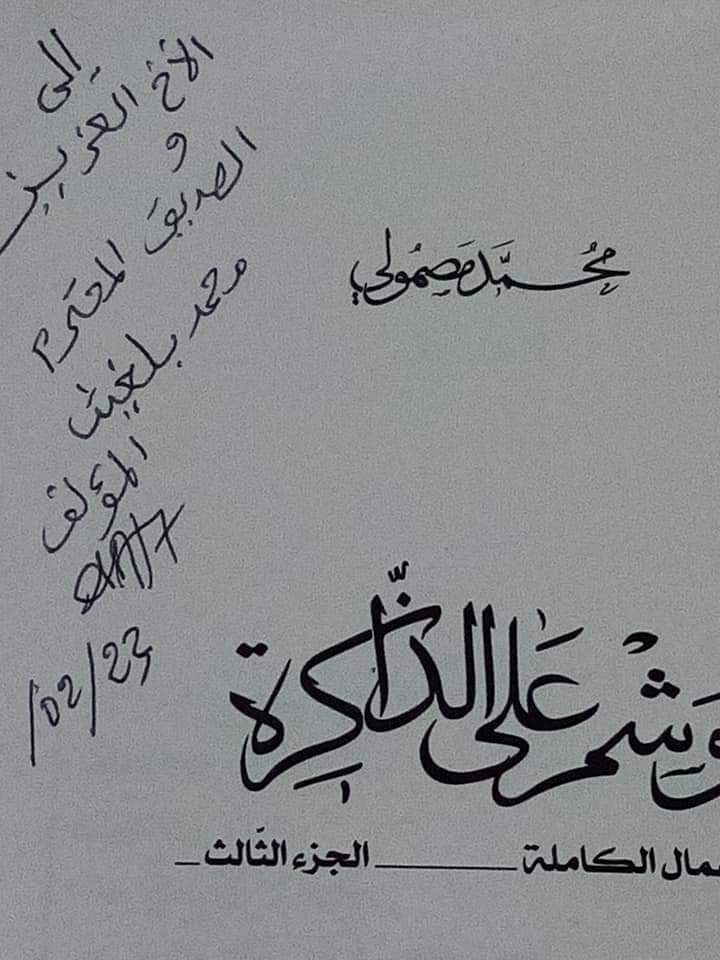 إلى
الأخ العزيز
و
الصديق المحترم
محمد بلغيث
المؤلف
/02/23
محمّد مصمولي
وشم على الذّاكرة
الكاملة الجزء الثّالث